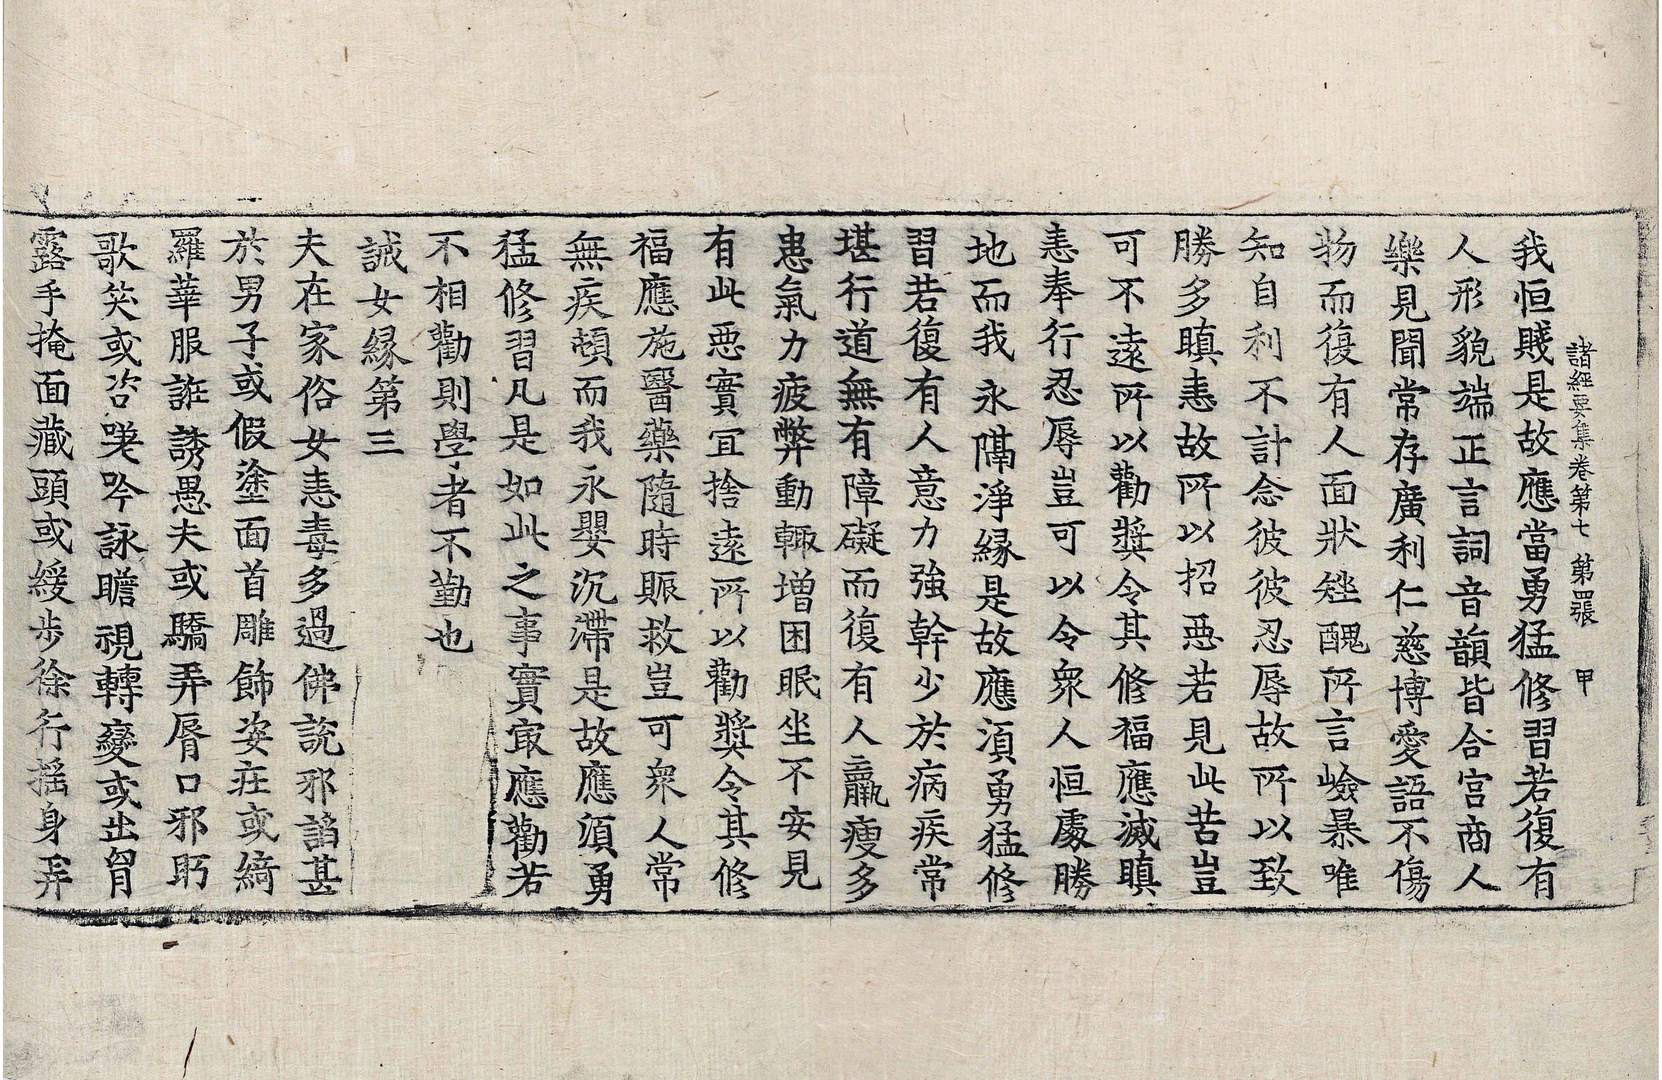 諸經要集卷第七 第四張 甲
我恒賤是故應當勇猛修習若復有
人形貌端正言詞音韻皆合宮商人
樂見聞常存廣利仁慈博愛語不傷
物而復有人面狀矬醜所言嶮暴唯
知自利不計念彼彼忍辱故所以致
勝多瞋恚故所以招惡若見此苦豈
可不遠所以勸獎令其修福應滅瞋
恚奉行忍辱豈可以令衆人恒處勝
地而我永隔淨緣是故應須勇猛修
習若復有人意力強幹少於病疾常
堪行道無有障礙而復有人羸瘦多
患氣力疲弊動輙增困眠坐不安見
有此惡實冝捨遠所以勸獎令其修
福應施醫藥隨時賑救豈可衆人常
無疾頓而我永嬰沉滯是故應須勇
猛修習凡是如此之事實㝡應勸若
不相勸則學者不勤也
誡女緣第三
夫在家俗女恚毒多過佛說邪諂甚
於男子或假塗面首雕飾姿㽵或綺
羅華服誑誘愚夫或驕弄脣口邪眄
歌笑或咨嗟吟詠瞻視轉變或出胷
露手掩面藏頭或緩步徐行搖身弄